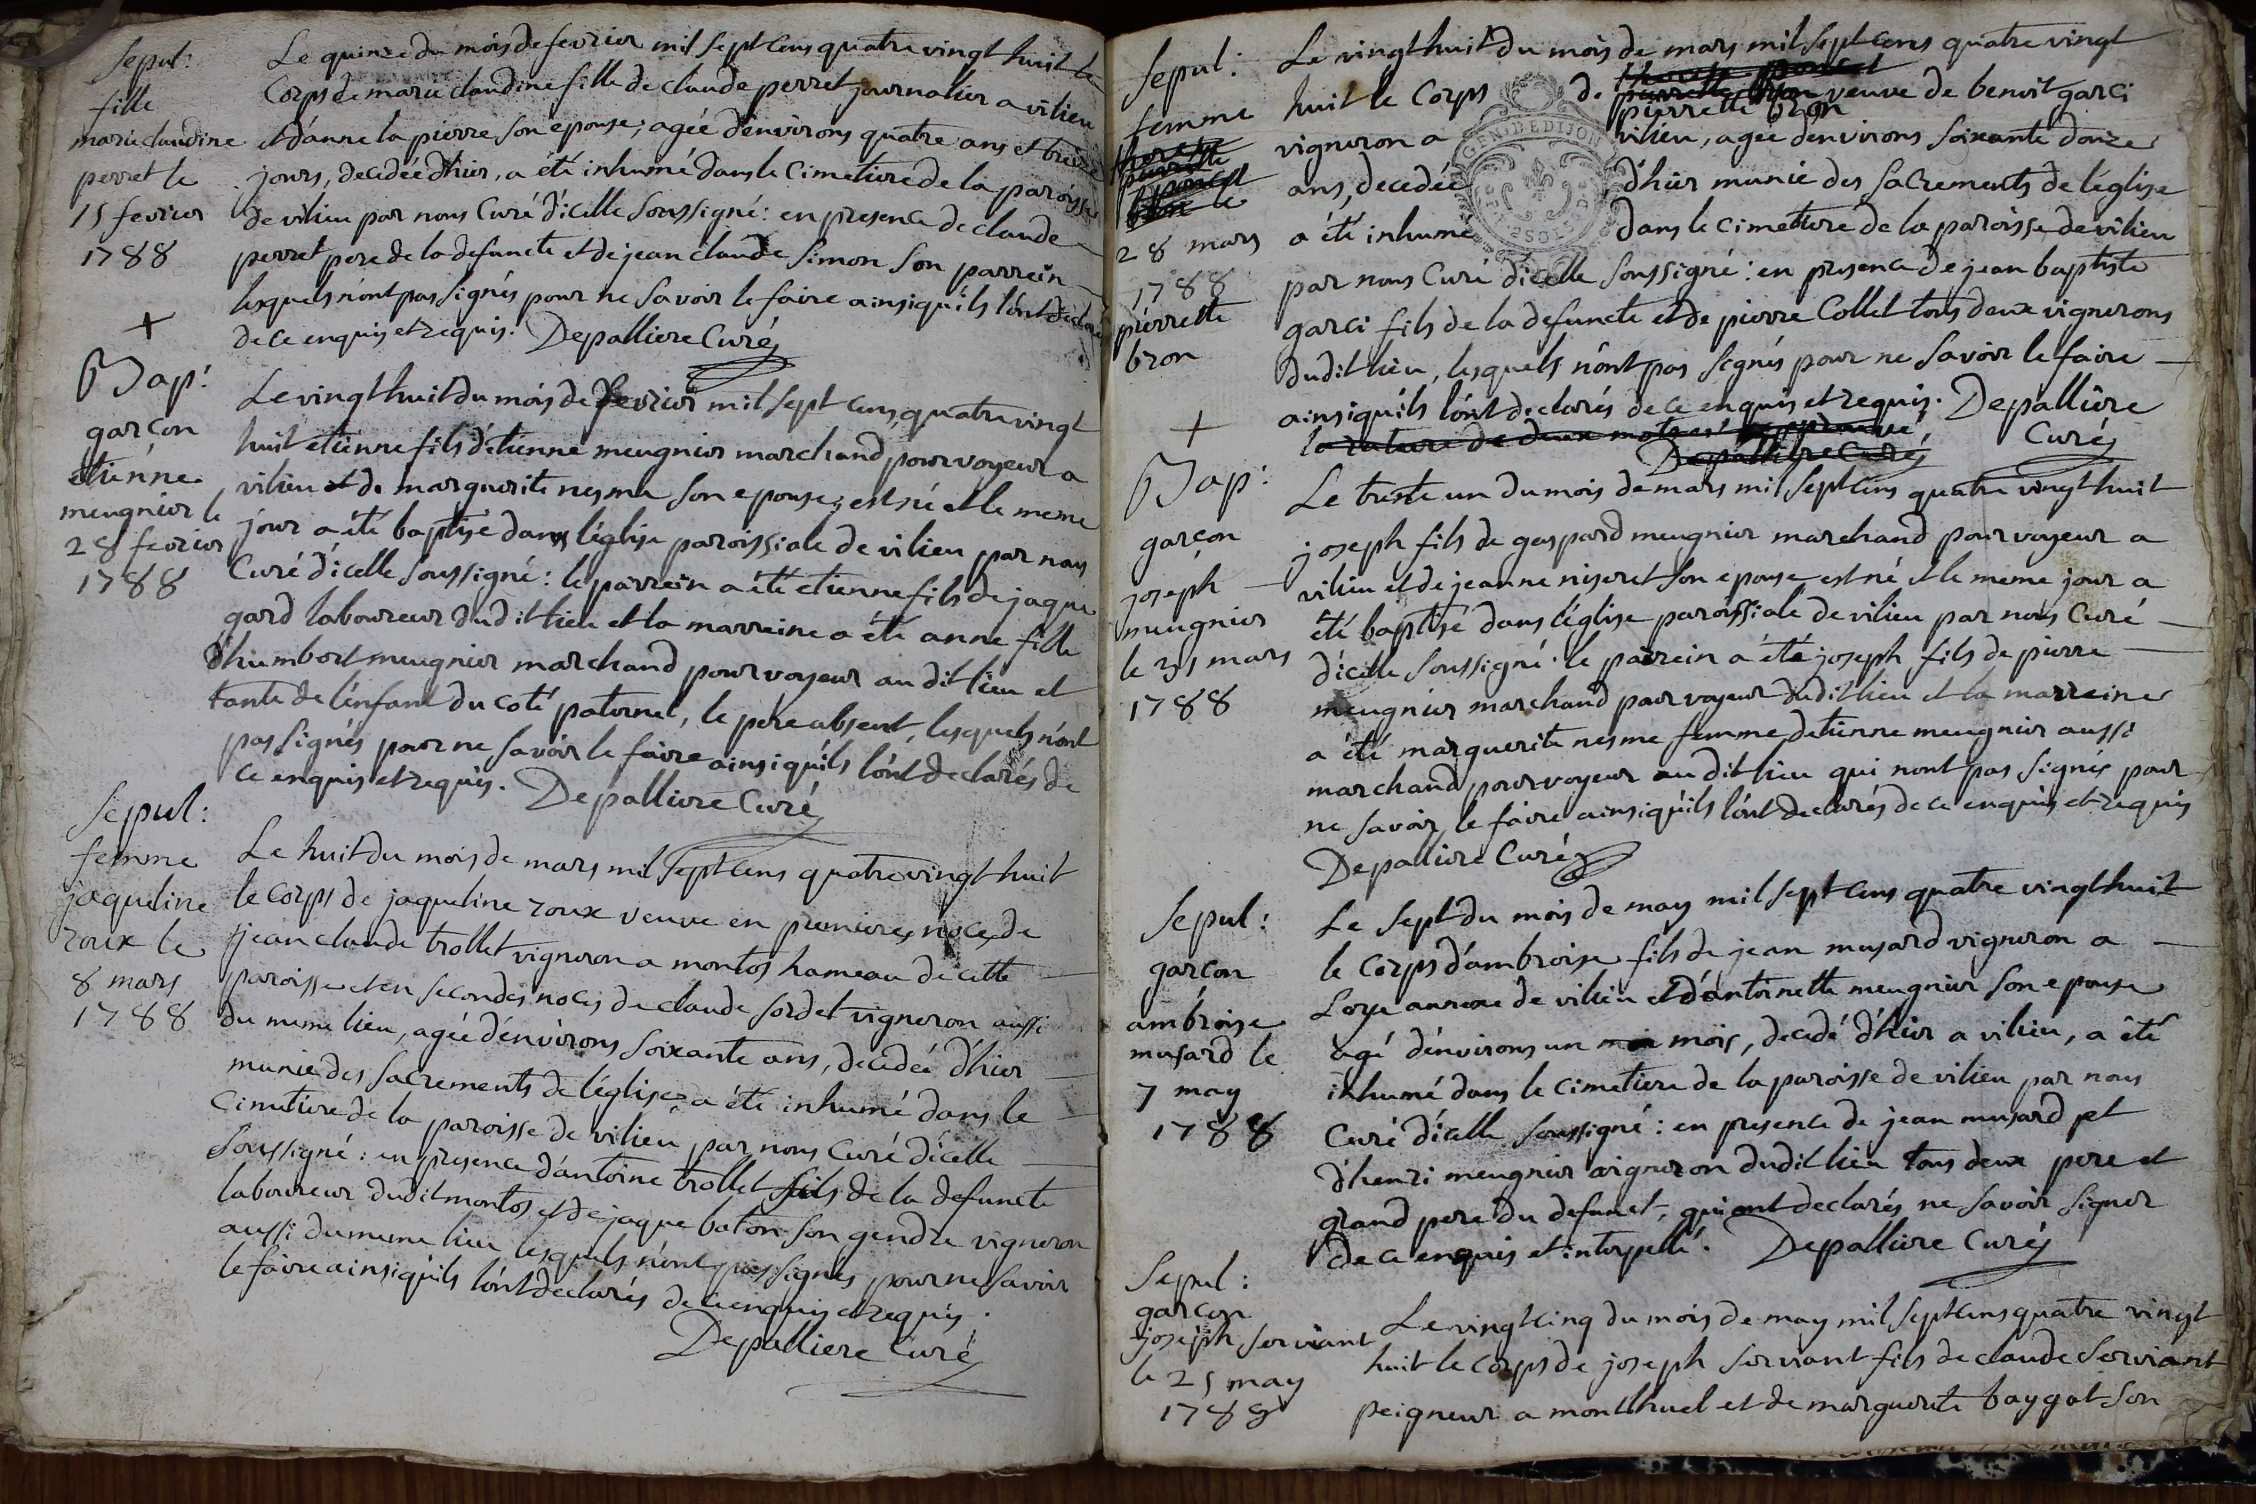 Sepul:
fille
marie claudine
perret le
15 fevrier
1788
Le quinze du mois de fevrier mil sept cens quatre vingt huit le
Corps de marie claudine fille de claude perret journalier a vilieu
et d'anne la pierre son epouse, agée d'environs quatre ans et treize
jours, decedée d'hier, a été inhumé dans le Cimetiere de la paroisse
de vilieu par nous Curé d'icelle soussigné: en presence de claude
perret pere de la defuncte et de jean claude Simon son parrein
lesquels n'ont pas signés pour ne savoir le faire ainsi qu'ils l'ont declaré
de ce enquis et requis. Depalliere Curé
+
Bap:
garçon
etiénne
meugnier le
28 fevrier
1788
Le vingt huit du mois de fevrier mil sept cens quatre vingt
huit etienne fils d'etienne meugnier marchand pourvoyeur a
vilieu et de marguerite nesme son epouse, est né et le meme
jour a été baptisé dans l'église paroissiale de vilieu par nous
Curé d'icelle soussigné: le parrein a été etienne fils de jaque
gard laboureur dudit lieu et la marreine a été anne fille
d'humbert meugnier marchand pourvoyeur audit lieu et
tante de l'enfant du coté paternel, le pere absent, lesquels n'ont
pas signés pour ne savoir le faire ainsi qu'ils l'ont declarés de
ce enquis et requis. Depalliere Curé
Sepul:
femme
jaqueline
roux le
8 mars
1788
Le huit du mois de mars mil sept cens quatre vingt huit
le corps de jaqueline roux veuve en premieres noces de
jean claude trollet vigneron a montos hameau de cette
paroisse et en secondes noces de claude sordet vigneron aussi
du meme lieu, agée d'environs soixante ans, decedée d'hier
munie des sacrements de l'église, a été inhumé dans le
Cimetiere de la paroisse de vilieu par nous Curé d'icelle
soussigné: en presence d'antoine trollet fils de la defuncte
laboureur dudit montos et de jaque baton son gendre vigneron
aussi du meme lieu lesquels n'ont pas signés pour ne savoir
le faire ainsi qu'ils l'ont declarés de ce enquis et requis.
Depalliere Curé
Sepul:
femme
le
28 mars
1788
pierrette
bron
Le vingt huit du mois de mars mil sept cens quatre vingt
huit le Corps de pierrette bron veuve de benoit garci
vigneron a vilieu, agée d'environs soixante douze
ans, decedée d'hier munie des sacrements de l'église
a été inhumé dans le cimetiere de la paroisse de vilieu
par nous Curé d'icelle soussigné: en presence de jean baptiste
garci fils de la defuncte et de pierre Collet tous deux vignerons
dudit lieu, lesquels n'ont pas signés pour ne savoir le faire
ainsi qu'ils l'ont declarés de ce enquis et requis. Depalliere
Curé
la rature de deux mots est approuvé
Depalliere Curé
GEN. DE DIJON
+
Bap:
garçon
joseph
meugnier
le 31 mars
1788
Le trente un du mois de mars mil sept cens quatre vingt huit
joseph fils de gaspard meugnier marchand pourvoyeur a
vilieu et de jeanne niseret son epouse est né et le meme jour a
été baptisé dans l'église paroissiale de vilieu par nous Curé
d'icelle soussigné: le parrein a été joseph fils de pierre
meugnier marchand pourvoyeur dudit lieu et la marreine
a été marguerite nesme femme d'etienne meugnier aussi
marchand pourvoyeur audit lieu qui n'ont pas signés pour
ne savoir le faire ainsi qu'ils l'ont declarés de ce enquis et requis
Depalliere Curé
Sepul:
garçon
ambroise
musard le
7 may
1788
Le sept du mois de may mil sept cens quatre vingt huit
le corps d'ambroise fils de jean musard vigneron a
Loye annexe de vilieu et d'antoinette meugnier son epouse
agé d'environs un mois, decedé d'hier a vilieu, a été
inhumé dans le cimetiere de la paroisse de vilieu par nous
Curé d'icelle soussigné: en presence de jean musard et
d'henri meugnier vigneron dudit lieu tous deux pere et
grand pere du defunct, qui ont declarés ne savoir signer
de ce enquis et interpellé. Depalliere Curé
Sepul:
garçon
joseph serviant
le 25 may
1788
Le vingt cinq du mois de may mil sept cens quatre vingt
huit le corps de joseph serviant fils de claude serviant
peigneur a montluel et de marguerite baygat son